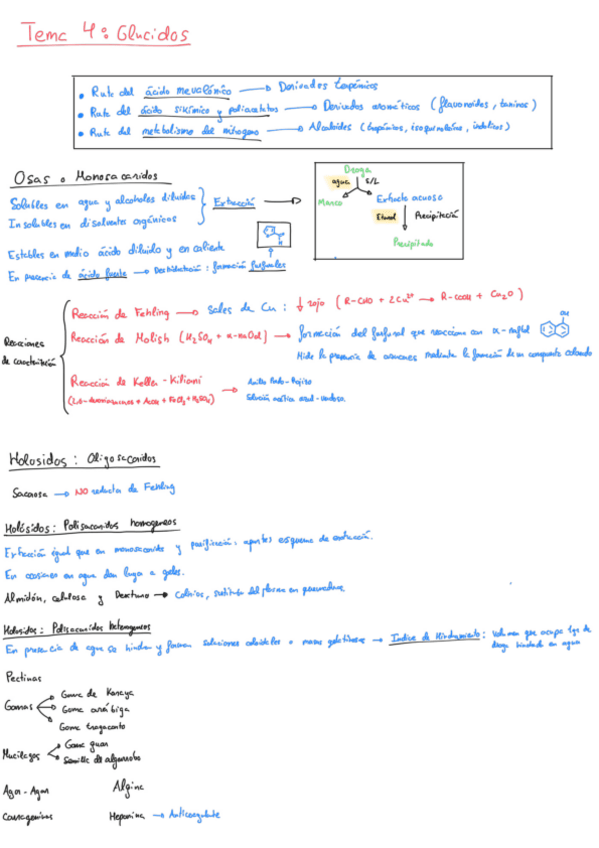 Tema 4: Glucidos
• Ruta del ácido mevalónico → Derivados terpénicos
• Ruta del ácido sikímico y poliacetatos → Derivados aromáticos (flavonoides, taninos)
• Ruta del metabolismo del nitrogeno → Alcaloides (tropánicos, isoquinoleína, indolicos)
Osas o Monosacaridos
Solubles en agua y alcoholes diluidos
Insolubles en disolventes orgánicos
Extracción →
Droga
agua S/L
Marco Extracto acuoso
Etanol Precipitación
Precipitado
Estables en medio ácido diluido y en caliente
En presencia de ácido fuerte → Deshidratación: formación furfurales
Reacciones de caracterización
Reacción de Fehling → Sales de Cu: ↓ rojo (R-CHO + 2Cu²⁺ → R-COOH + Cu₂O)
Reacción de Molish (H₂SO₄ + α-naOH) → formación del furfural que reacciona con α-naftol
OH
Mide la presencia de osas mediante la formación de un compuesto coloreado
Reacción de Keller-Kiliani →
(2,6-desoxiazucares + AcOH + FeCl₃ + H₂SO₄)
Anillo Pardo-Rojizo
Solución acética azul-verdosa.
Holosidos: Oligosacaridos
Sacarosa → NO reductor de Fehling
Holósidos: Polisacaridos homogeneos
Extracción igual que en monosacarido y purificación: apuntes esquema de extracción.
En ocasiones en agua dan lugar a geles.
Almidón, celulosa y Dextrano → Colirios, sustituto del plasma en
Holosidos: Polisacaridos heterogeneos
En presencia de agua se hinchan y forman soluciones coloidales o masas gelatinosas → Indice de Hinchamiento: Volumen que ocupa 1g de
droga hinchada en agua
Pectinas
Gomas
Goma de Karaya
Goma arábiga
Goma tragacanto
Mucilagos
Goma guar
Semilla de algarrobo
Agar-Agar Algina
Carragenina Heparina → Anticoagulante